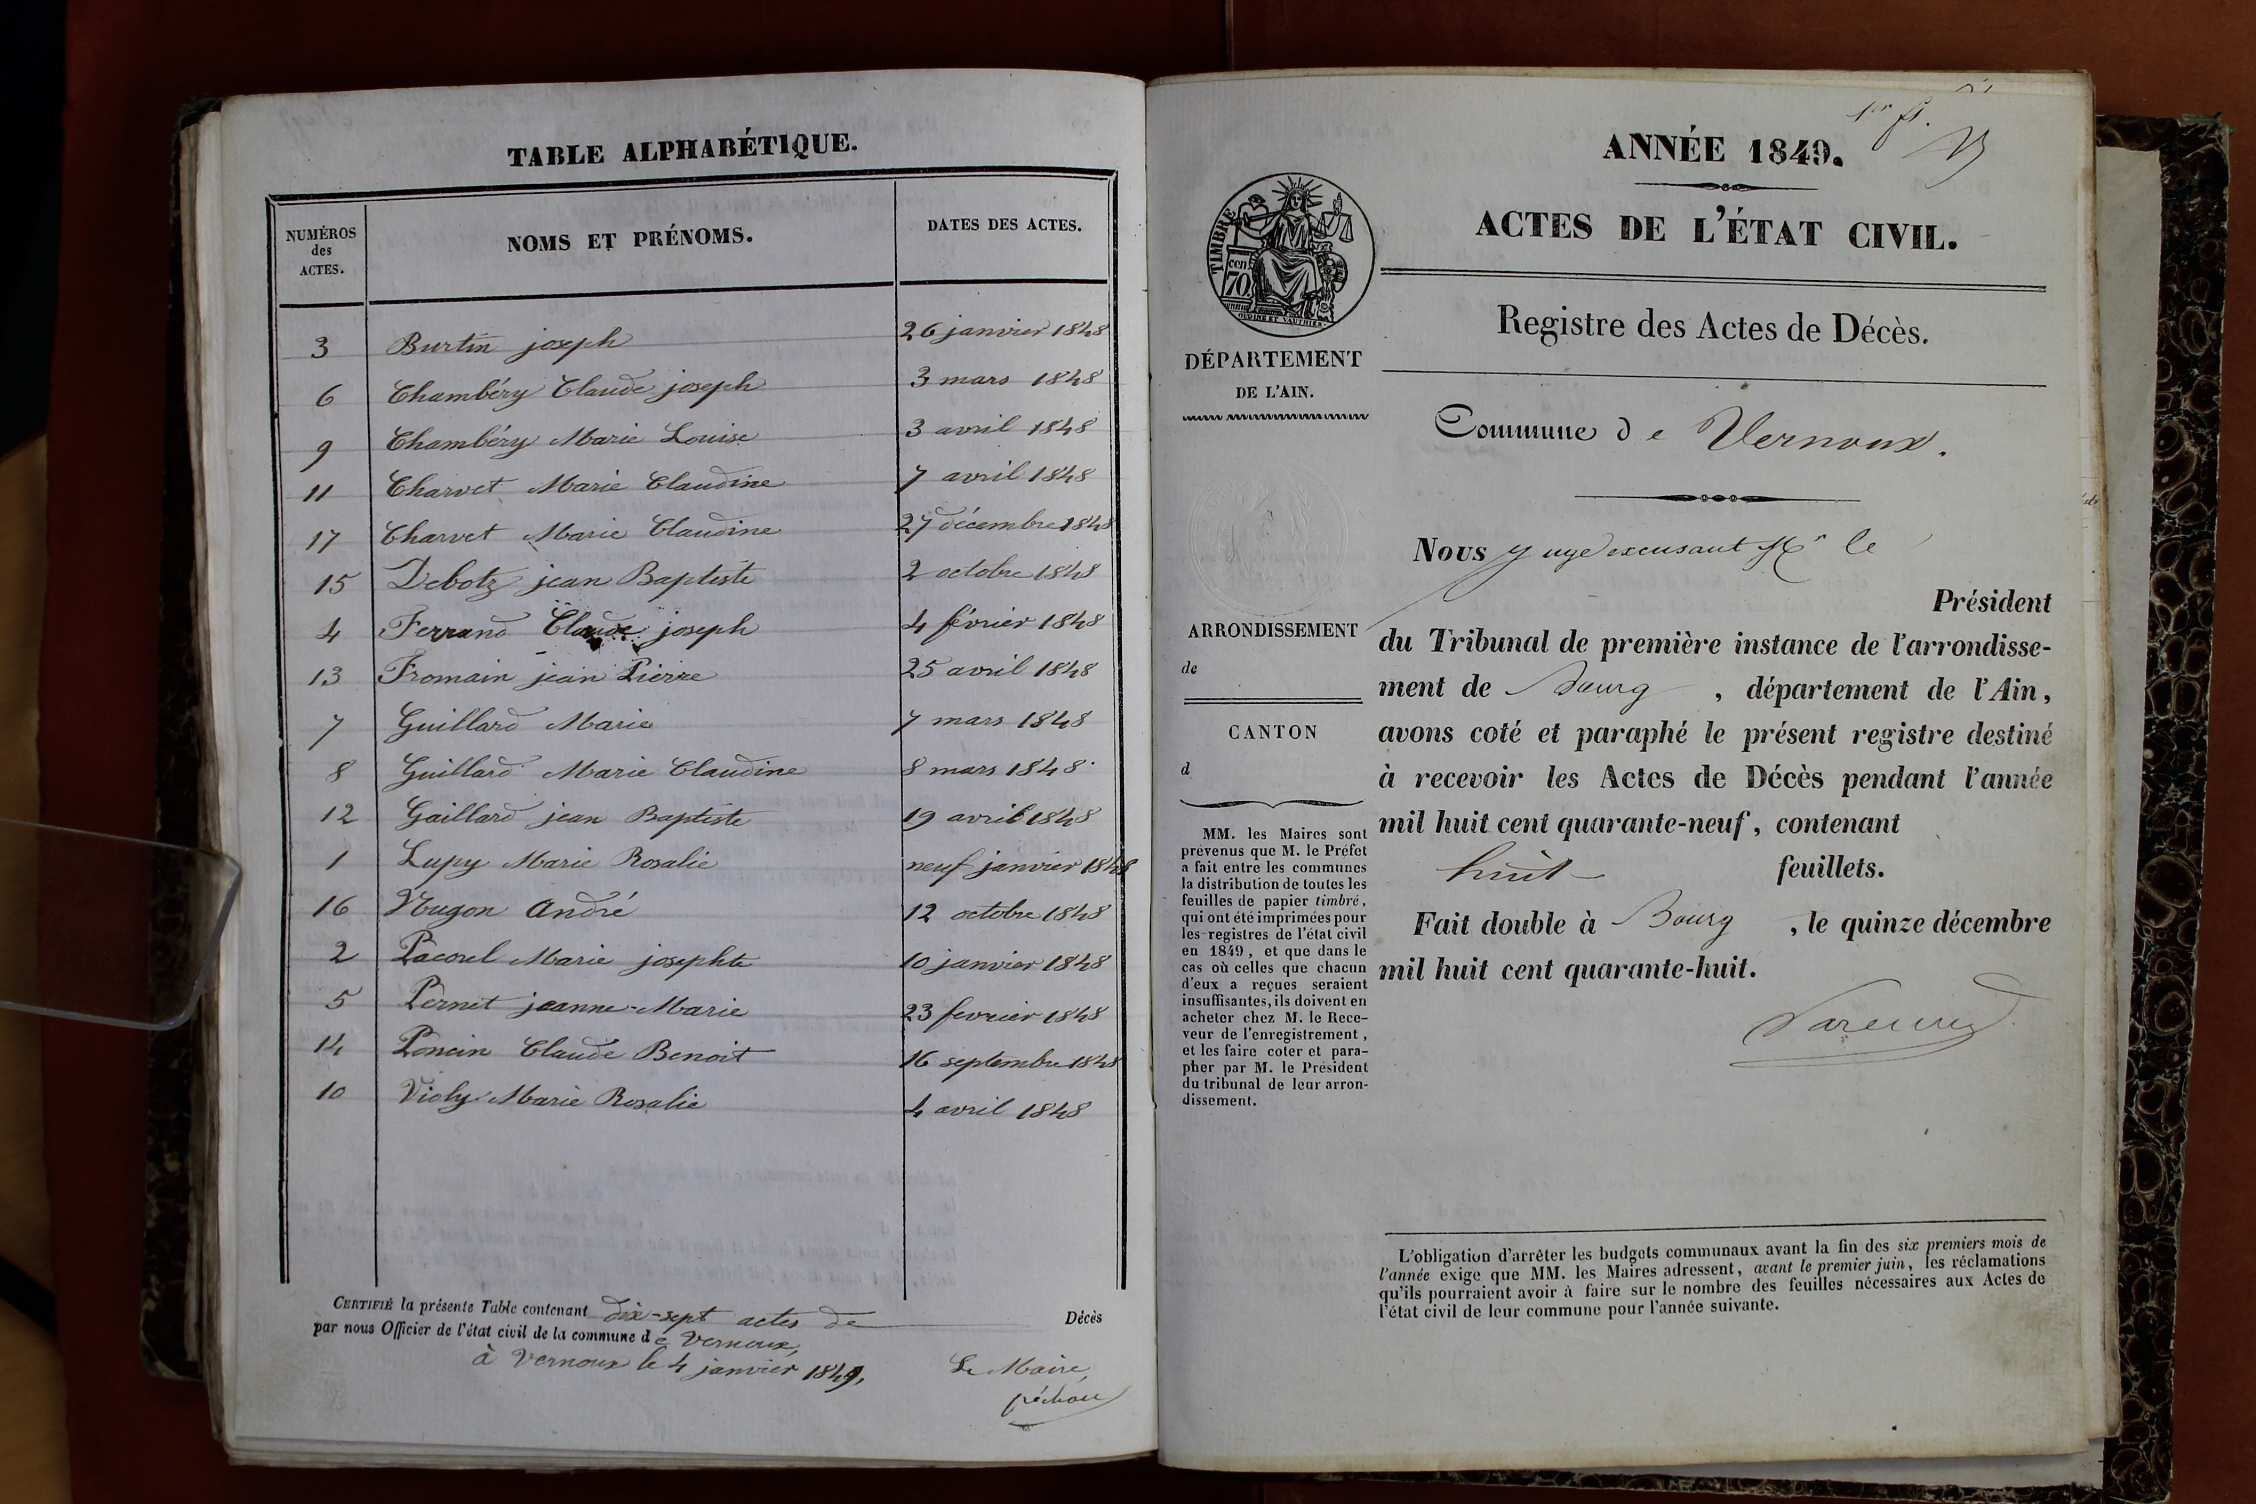 TABLE ALPHABÉTIQUE.
NUMÉROS
des
ACTES.
NOMS ET PRÉNOMS.
DATES DES ACTES.
3 Burtin joseph 26 janvier 1848
6 Chambéry Claude joseph 3 mars 1848
9 Chambéry Marie Louise 3 avril 1848
11 Charvet Marie Claudine 7 avril 1848
17 Charvet Marie Claudine 27 décembre 1848
15 Debotz jean Baptiste 2 octobre 1848
4 Ferrand Claude joseph 4 février 1848
13 Fromain jean Pierre 25 avril 1848
7 Guillard Marie 7 mars 1848
8 Guillard Marie Claudine 8 mars 1848.
12 Gaillard jean Baptiste 19 avril 1848
1 Lupy Marie Rosalie neuf janvier 1848
16 Nugon André 12 octobre 1848
2 Pacorel Marie josephte 10 janvier 1848
5 Pernet jeanne-Marie 23 fevrier 1848
14 Poncin Claude Benoit 16 septembre 1848
10 Violy Marie Rosalie 4 avril 1848
CERTIFIÉ la présente Table contenant dix-sept actes de Décès
par nous Officier de l'état civil de la commune de Vernoux,
à Vernoux le 4 janvier 1849,
Le Maire,
péchou
1er f.
ANNÉE 1849.
ACTES DE L'ÉTAT CIVIL.
TIMBRE
cen
70
Registre des Actes de Décès.
DÉPARTEMENT
DE L'AIN.
Commune de Vernoux.
Nous juge excusant Mr le
Président
du Tribunal de première instance de l'arrondisse-
ment de Bourg, département de l'Ain,
avons coté et paraphé le présent registre destiné
à recevoir les Actes de Décès pendant l'année
mil huit cent quarante-neuf, contenant
huit feuillets.
Fait double à Bourg, le quinze décembre
mil huit cent quarante-huit.
ARRONDISSEMENT
de
CANTON
d
MM. les Maires sont
prévenus que M. le Préfet
a fait entre les communes
la distribution de toutes les
feuilles de papier timbré,
qui ont été imprimées pour
les registres de l'état civil
en 1849, et que dans le
cas où celles que chacun
d'eux a reçues seraient
insuffisantes, ils doivent en
acheter chez M. le Rece-
veur de l'enregistrement,
et les faire coter et para-
pher par M. le Président
du tribunal de leur arron-
dissement.
L'obligation d'arrêter les budgets communaux avant la fin des six premiers mois de
l'année exige que MM. les Maires adressent, avant le premier juin, les réclamations
qu'ils pourraient avoir à faire sur le nombre des feuilles nécessaires aux Actes de
l'état civil de leur commune pour l'année suivante.